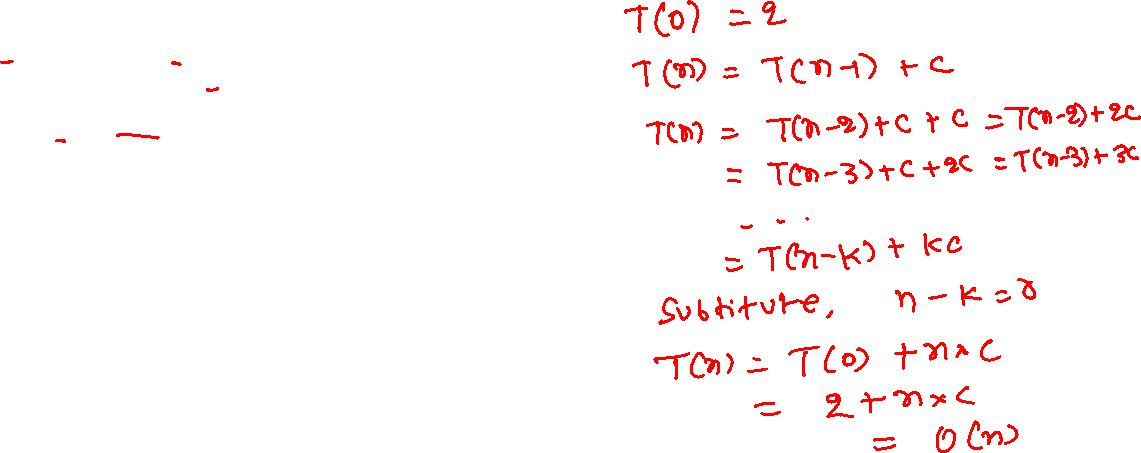 T(0) = 2
T(n) = T(n-1) + c
T(n) = T(n-2) + c + c = T(n-2) + 2c
= T(n-3) + c + 2c = T(n-3) + 3c
- - .
= T(n-k) + kc
Substitute, n - k = 0
T(n) = T(0) + n × c
= 2 + n × c
= O(n)